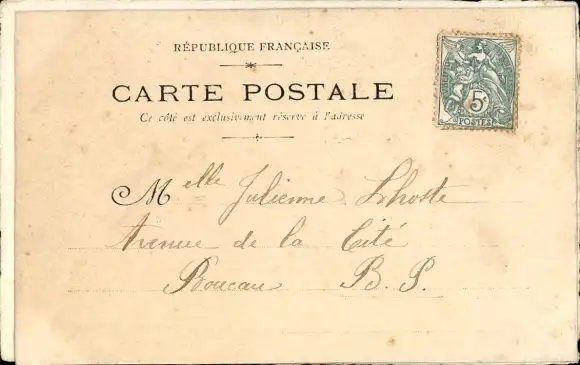 RÉPUBLIQUE FRANÇAISE
CARTE POSTALE
Ce côté est exclusivement réservé à l'adresse
5c
POSTES
Melle Julienne Lhoste
Avenue de la Cité
Boucau B. P.